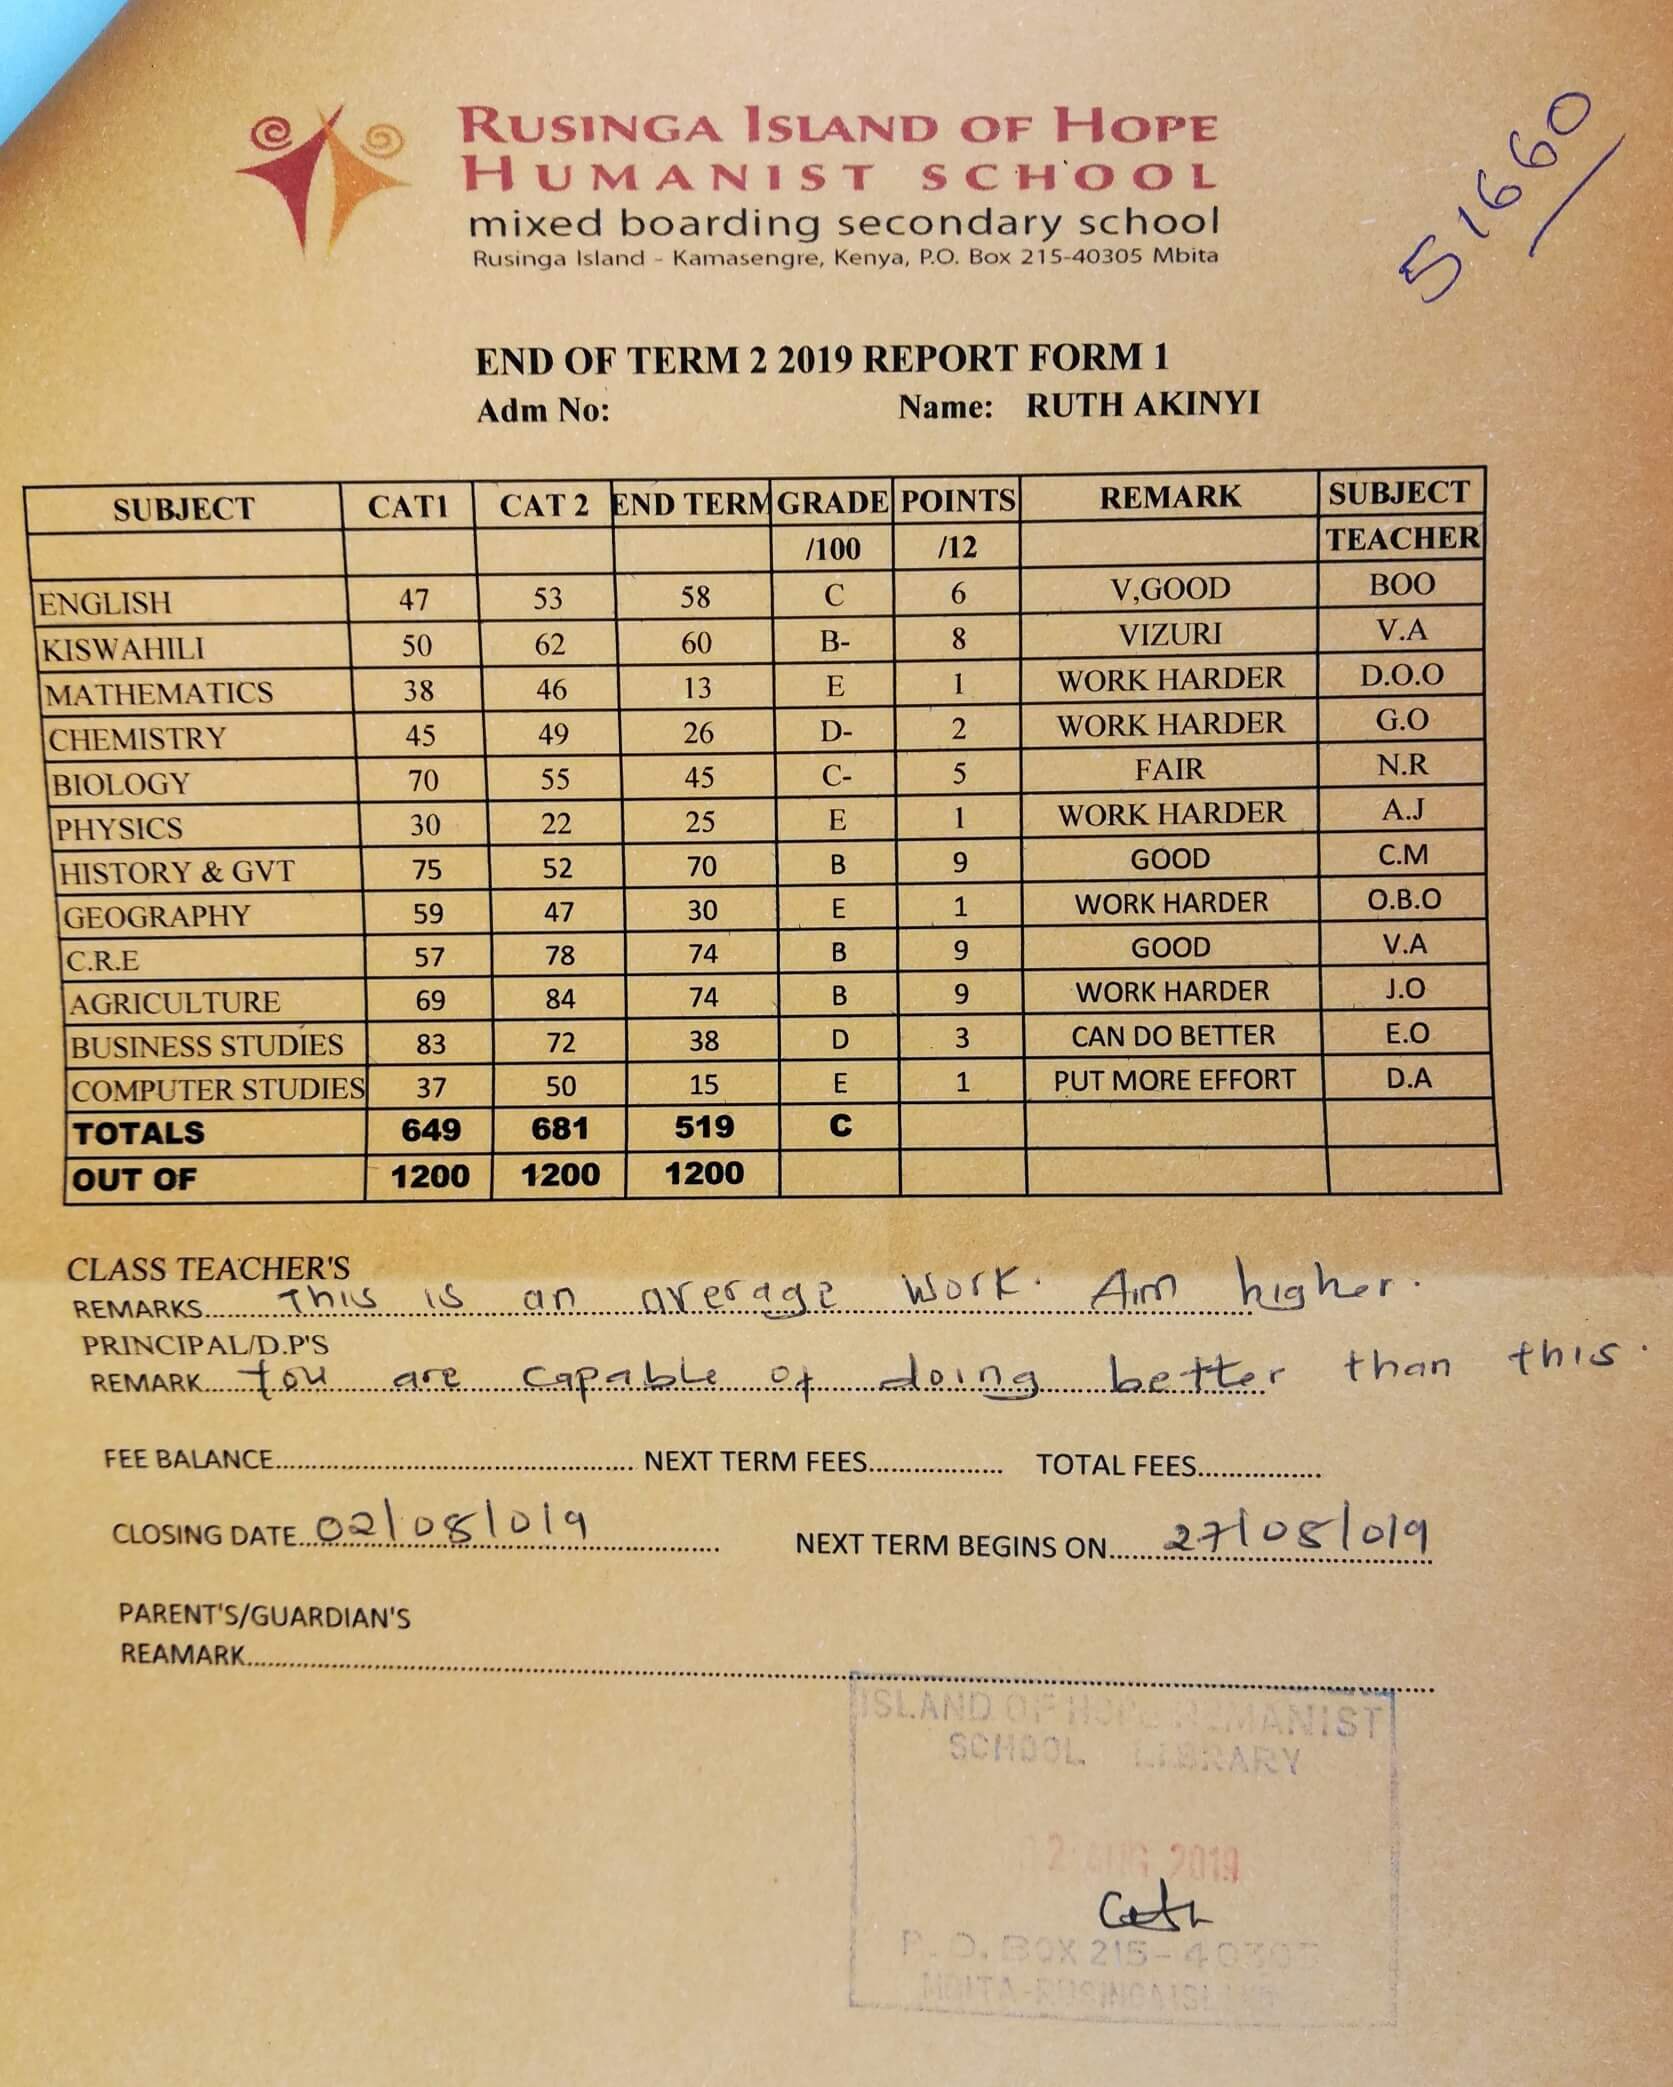 RUSINGA ISLAND OF HOPE
HUMANIST SCHOOL
mixed boarding secondary school
Rusinga Island - Kamasengre, Kenya, P.O. Box 215-40305 Mbita
51660/
END OF TERM 2 2019 REPORT FORM 1
Adm No: Name: RUTH AKINYI
SUBJECT CAT1 CAT 2 END TERM GRADE POINTS REMARK SUBJECT
/100 /12 TEACHER
ENGLISH 47 53 58 C 6 V,GOOD BOO
KISWAHILI 50 62 60 B- 8 VIZURI V.A
MATHEMATICS 38 46 13 E 1 WORK HARDER D.O.O
CHEMISTRY 45 49 26 D- 2 WORK HARDER G.O
BIOLOGY 70 55 45 C- 5 FAIR N.R
PHYSICS 30 22 25 E 1 WORK HARDER A.J
HISTORY & GVT 75 52 70 B 9 GOOD C.M
GEOGRAPHY 59 47 30 E 1 WORK HARDER O.B.O
C.R.E 57 78 74 B 9 GOOD V.A
AGRICULTURE 69 84 74 B 9 WORK HARDER J.O
BUSINESS STUDIES 83 72 38 D 3 CAN DO BETTER E.O
COMPUTER STUDIES 37 50 15 E 1 PUT MORE EFFORT D.A
TOTALS 649 681 519 C
OUT OF 1200 1200 1200
CLASS TEACHER'S
REMARKS......... This is an average work. Aim higher.
PRINCIPAL/D.P'S
REMARK..... You are capable of doing better than this.
FEE BALANCE............................................. NEXT TERM FEES................... TOTAL FEES................
CLOSING DATE...02/08/019............ NEXT TERM BEGINS ON......27/08/019
PARENT'S/GUARDIAN'S
REAMARK..........................................................................................
ISLAND OF HOPE HUMANIST
SCHOOL LIBRARY
2 AUG 2019
P.O. BOX 215-40305
MBITA-RUSINGA ISLAND